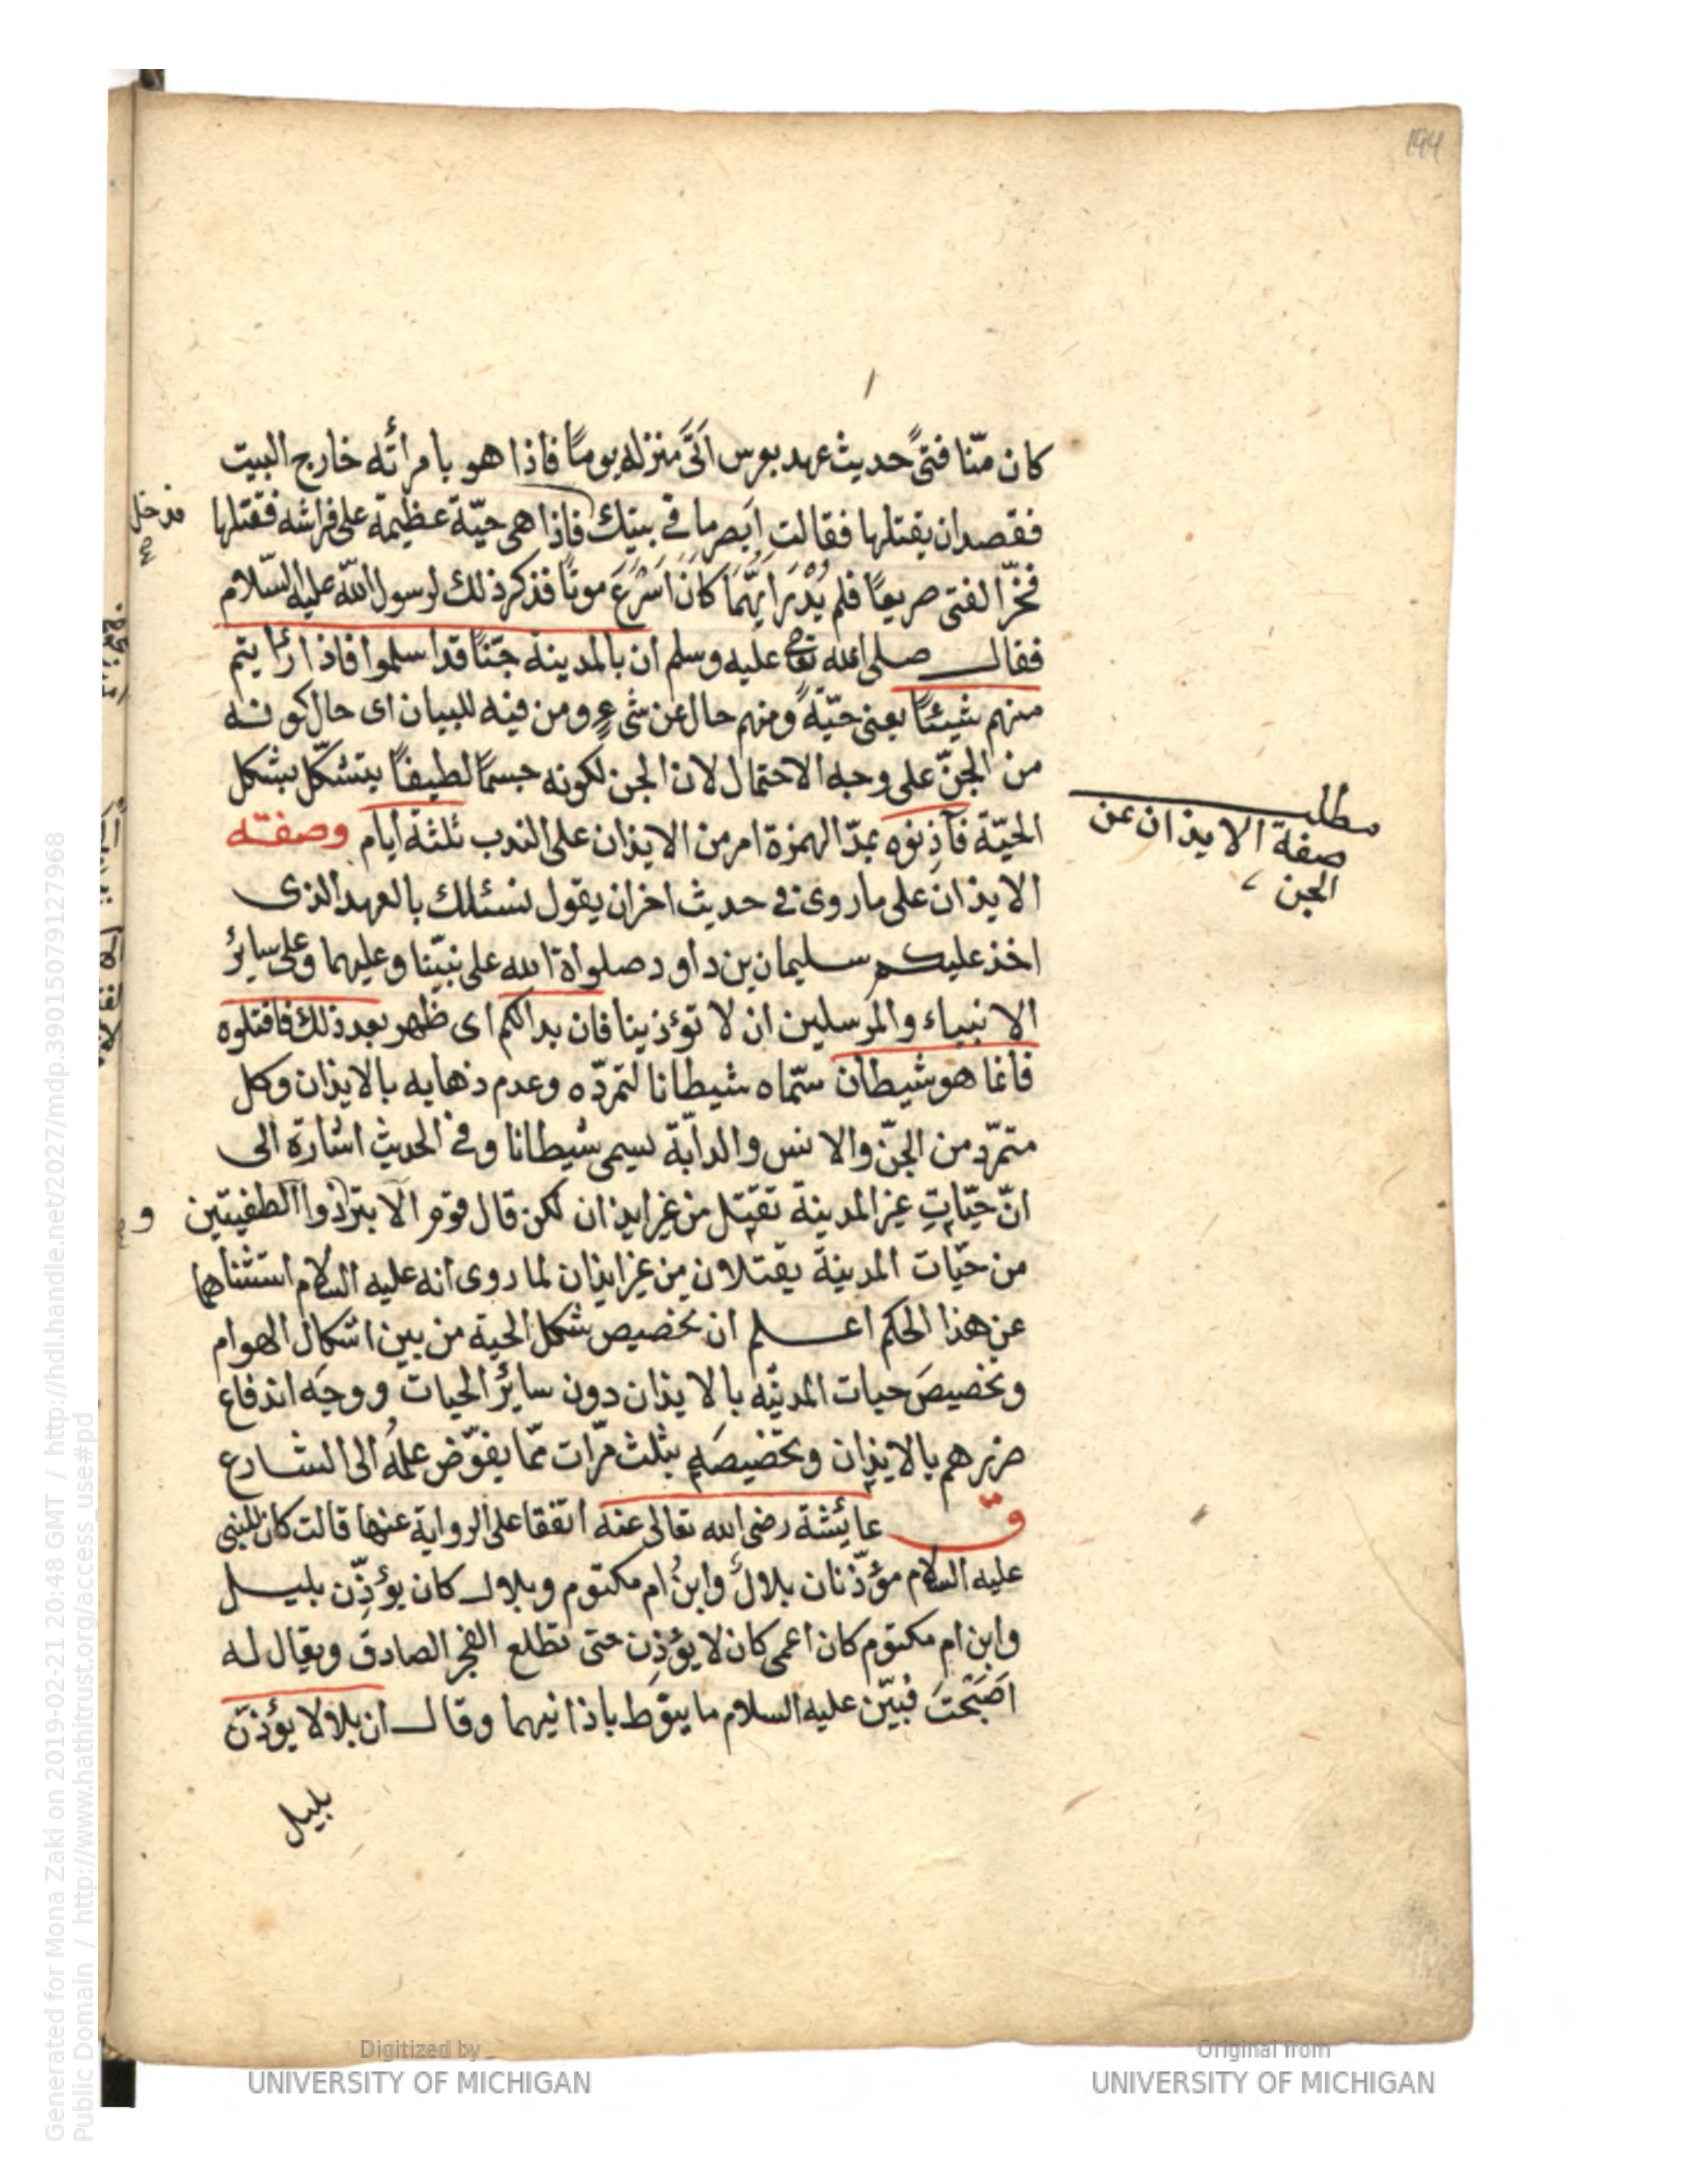 194
كان منّا فتىً حديث عهد بعرس اَتَى منزله يومًا فاذا هو بامرأته خارج البيت
فقصد ان يقتلها فقالت اَبصر ما في بيتك فاذا هى حيّة عظيمة على فراشه فقتلها
فدخل
صح
فخرّ الفتى صريعًا فلم يُدْرَ ايّهما كانَ اَسْرَعَ موتًا فذكر ذلك لرسول الله عليه السّلام
فقال صلى الله تعالى عليه وسلم ان بالمدينة جنّنًا قد اسلموا فاذا رأيتم
منهم شيئًا يعنى حيّةً ومنهم حال عن شىءٍ ومن فيه للبيان اى حال كونه
من الجنّ على وجه الاحتمال لان الجن لكونه جسمًا لطيفًا يتشكّل بشكل
الحيّة فآذِنوه بمدّ الهمزة امر من الايذان على الندب ثلثة ايام وصفته
مطلب
صفة الايذان عن
الجن
الايذان على ما روى فى حديث اخر ان يقول نسئلك بالعهد الذى
اخذ عليكم سليمان بن داود صلواة الله على نبيّنا وعليهما وعلى سائر
الانبياء والمرسلين ان لا تؤذينا فان بدا لكم اى ظهر بعد ذلك فاقتلوه
فانما هو شيطان سمّاه شيطانا لتمرّده وعدم ذهابه بالايذان وكل
متمرّد من الجنّ والانس والدابّة يسمى شيطانا وفى الحديث اشارة الى
انّ حيّاتِ غير المدينة تقتل من غير ايذان لكن قال قوم الابتر وذوا الطفيتين
و
من حيّات المدينة يقتلان من غير ايذان لما روى انه عليه السلام استثناهما
عن هذا الحكم اعلم ان تخصيص شكل الحية من بين اشكال الهوام
وتخصيصَ حيات المدينه بالايذان دون سائر الحيات ووجه اندفاع
ضررهم بالايذان وتخصيصَه بثلث مرّات ممّا يفوّض علمُه الى الشارع
قّ عايشة رضى الله تعالى عنه اتفقا على الرواية عنها قالت كان للنبى
عليه السلام مؤذّنان بلالٌ وابنُ ام مكتوم وبلال كان يؤذِّن بليل
وابن ام مكتوم كان اعمى كان لا يؤذِن حتى تطلع الفجر الصادق ويقال له
اَصْبَحْتَ فبيّن عليه السلام ما ينوط باذانيهما وقال ان بلالا يؤذنّ
بليل
Generated for Mona Zaki on 2019-02-21 20:48 GMT / http://hdl.handle.net/2027/mdp.39015079127968
Public Domain / http://www.hathitrust.org/access_use#pd
Digitized by
UNIVERSITY OF MICHIGAN
Original from
UNIVERSITY OF MICHIGAN